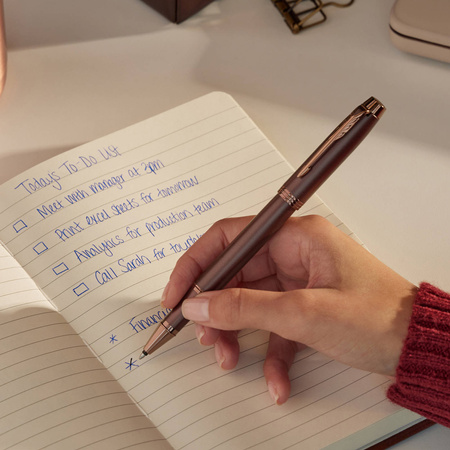 Today's To-Do List
Meet with manager at 2pm
Print excel sheets for tomorrow
Analysis for production team
Call Sarah for
* Financ
*